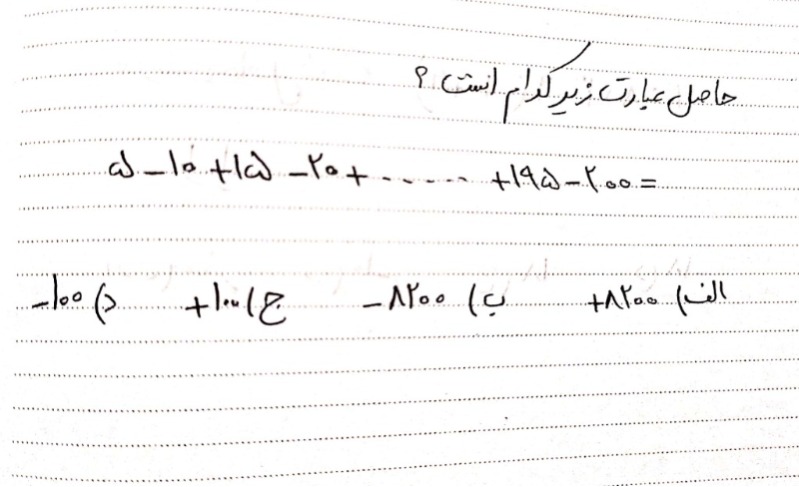 حاصل عبارت زیر کدام است ؟
۵ - ۱۰ + ۱۵ - ۲۰ + ...... + ۱۹۵ - ۲۰۰ =
الف) +۸۲۰۰ ب) -۸۲۰۰ ج) +۱۰۰ د) -۱۰۰